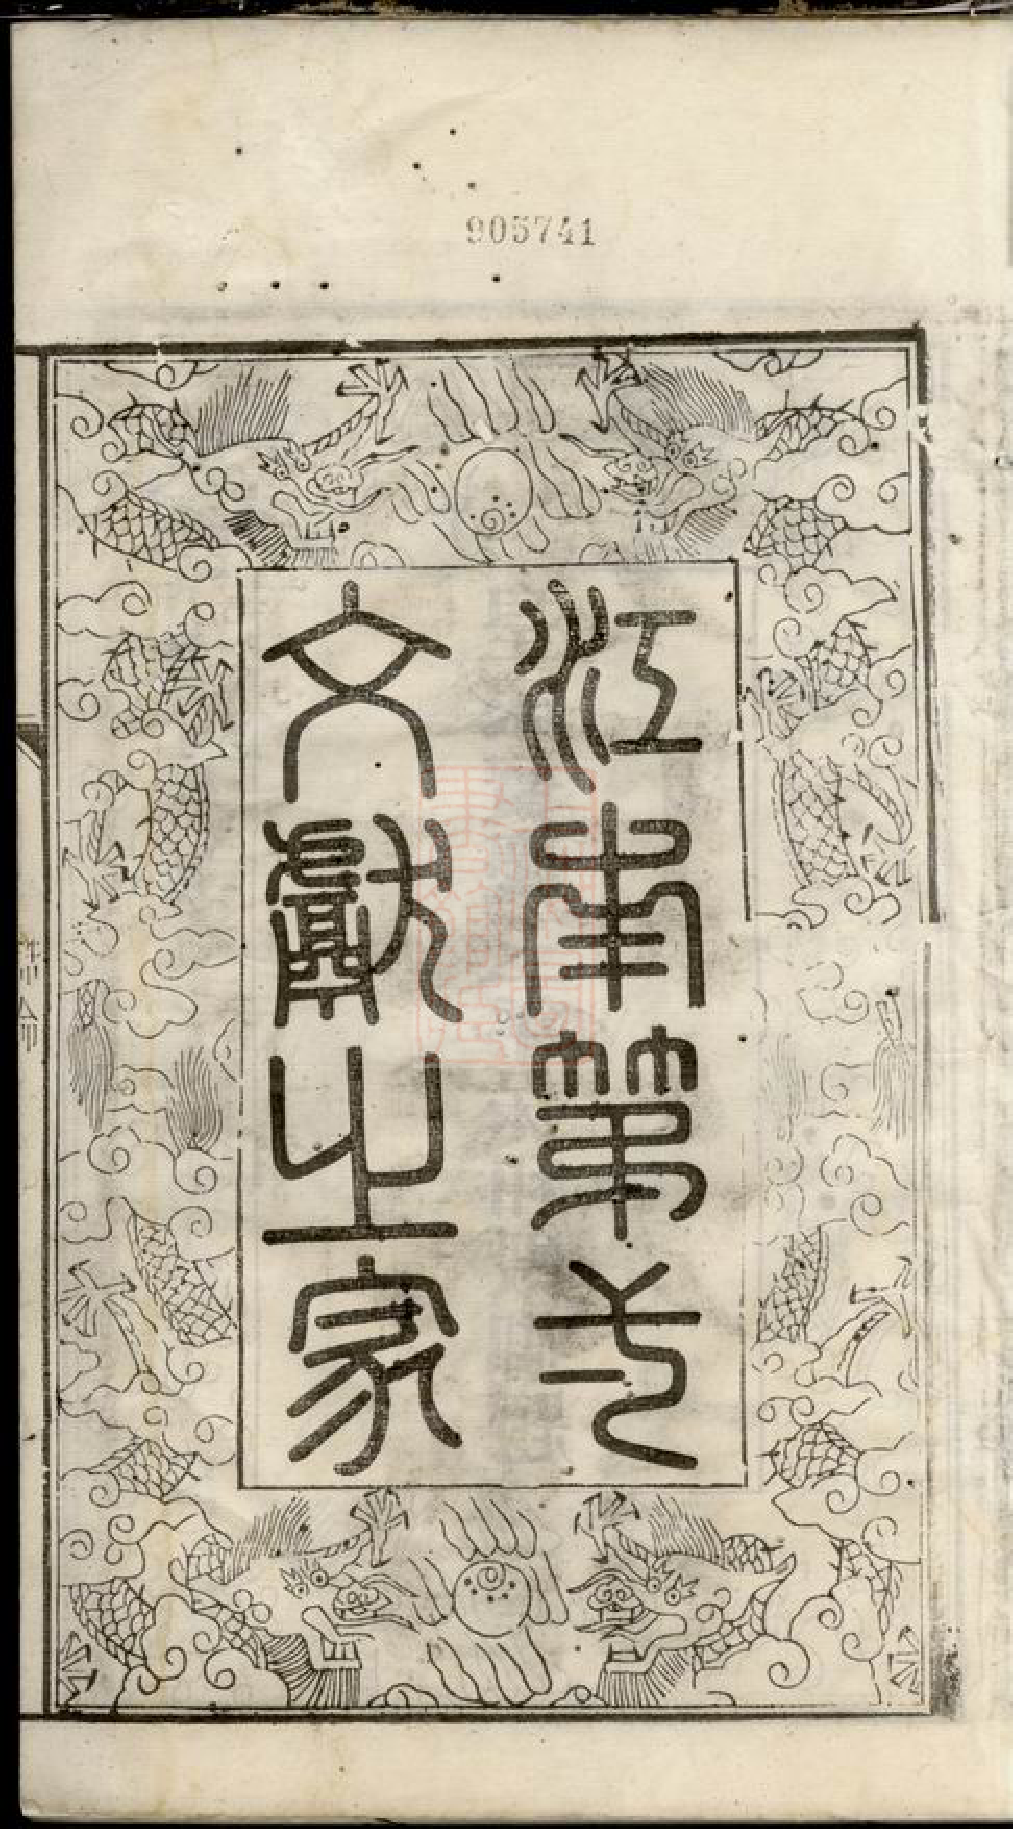 905741
江南第一
文獻之家